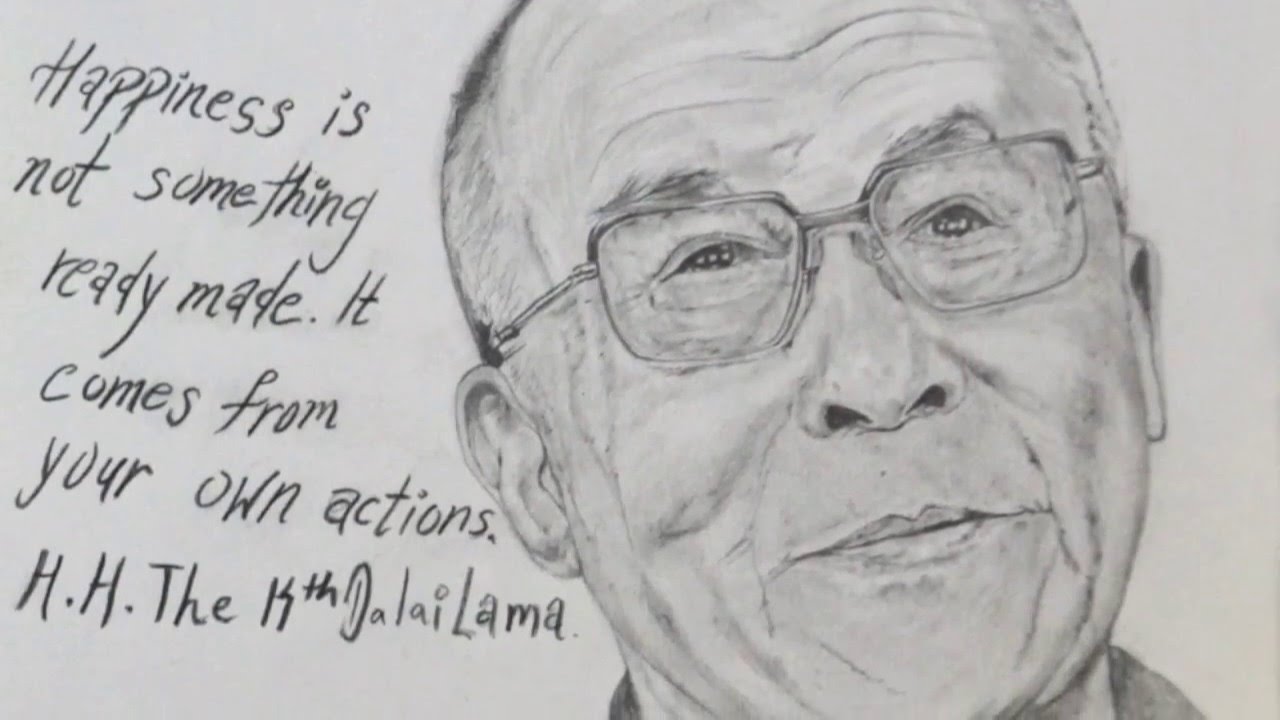 Happiness is
not something
ready made. It
comes from
your own actions.
H.H. The 14th Dalai Lama.